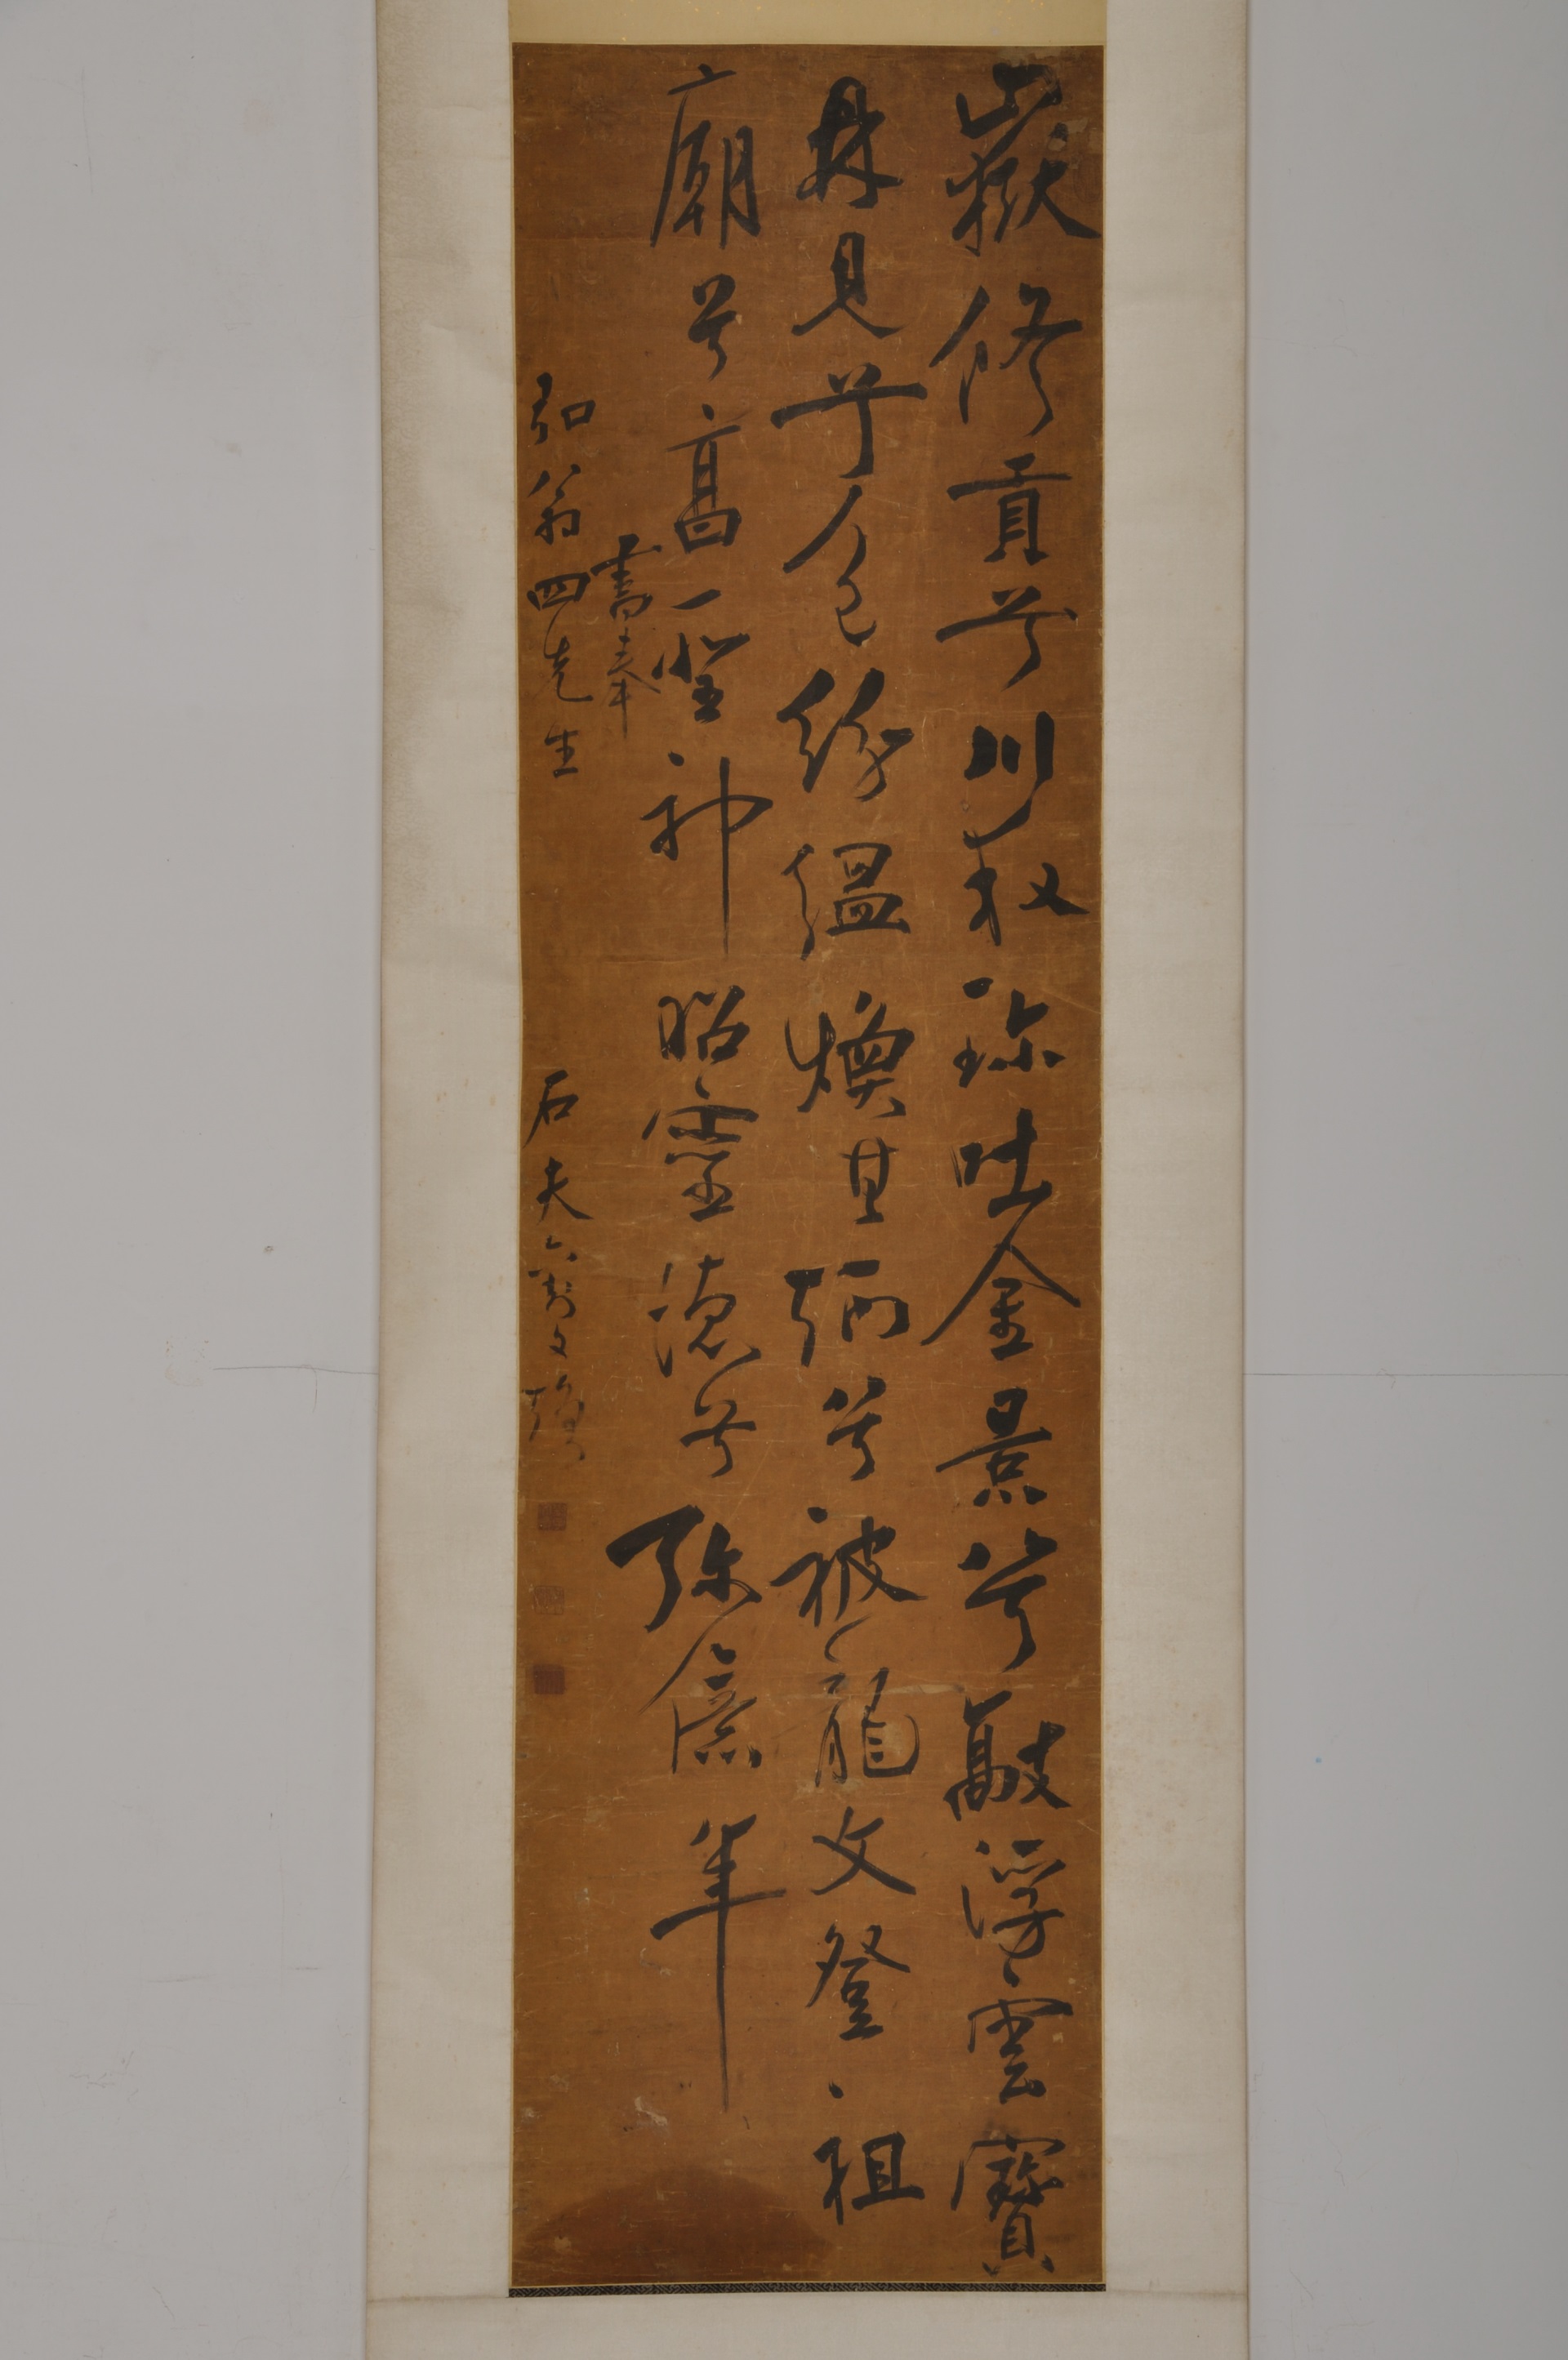 嶽修貢兮川效珍吐金景兮歊浮雲寶
鼎見兮色紛縕煥其炳兮被龍文登祖
廟兮亯聖神昭靈德兮彌億年
書奉
弘翁四先生
石夫